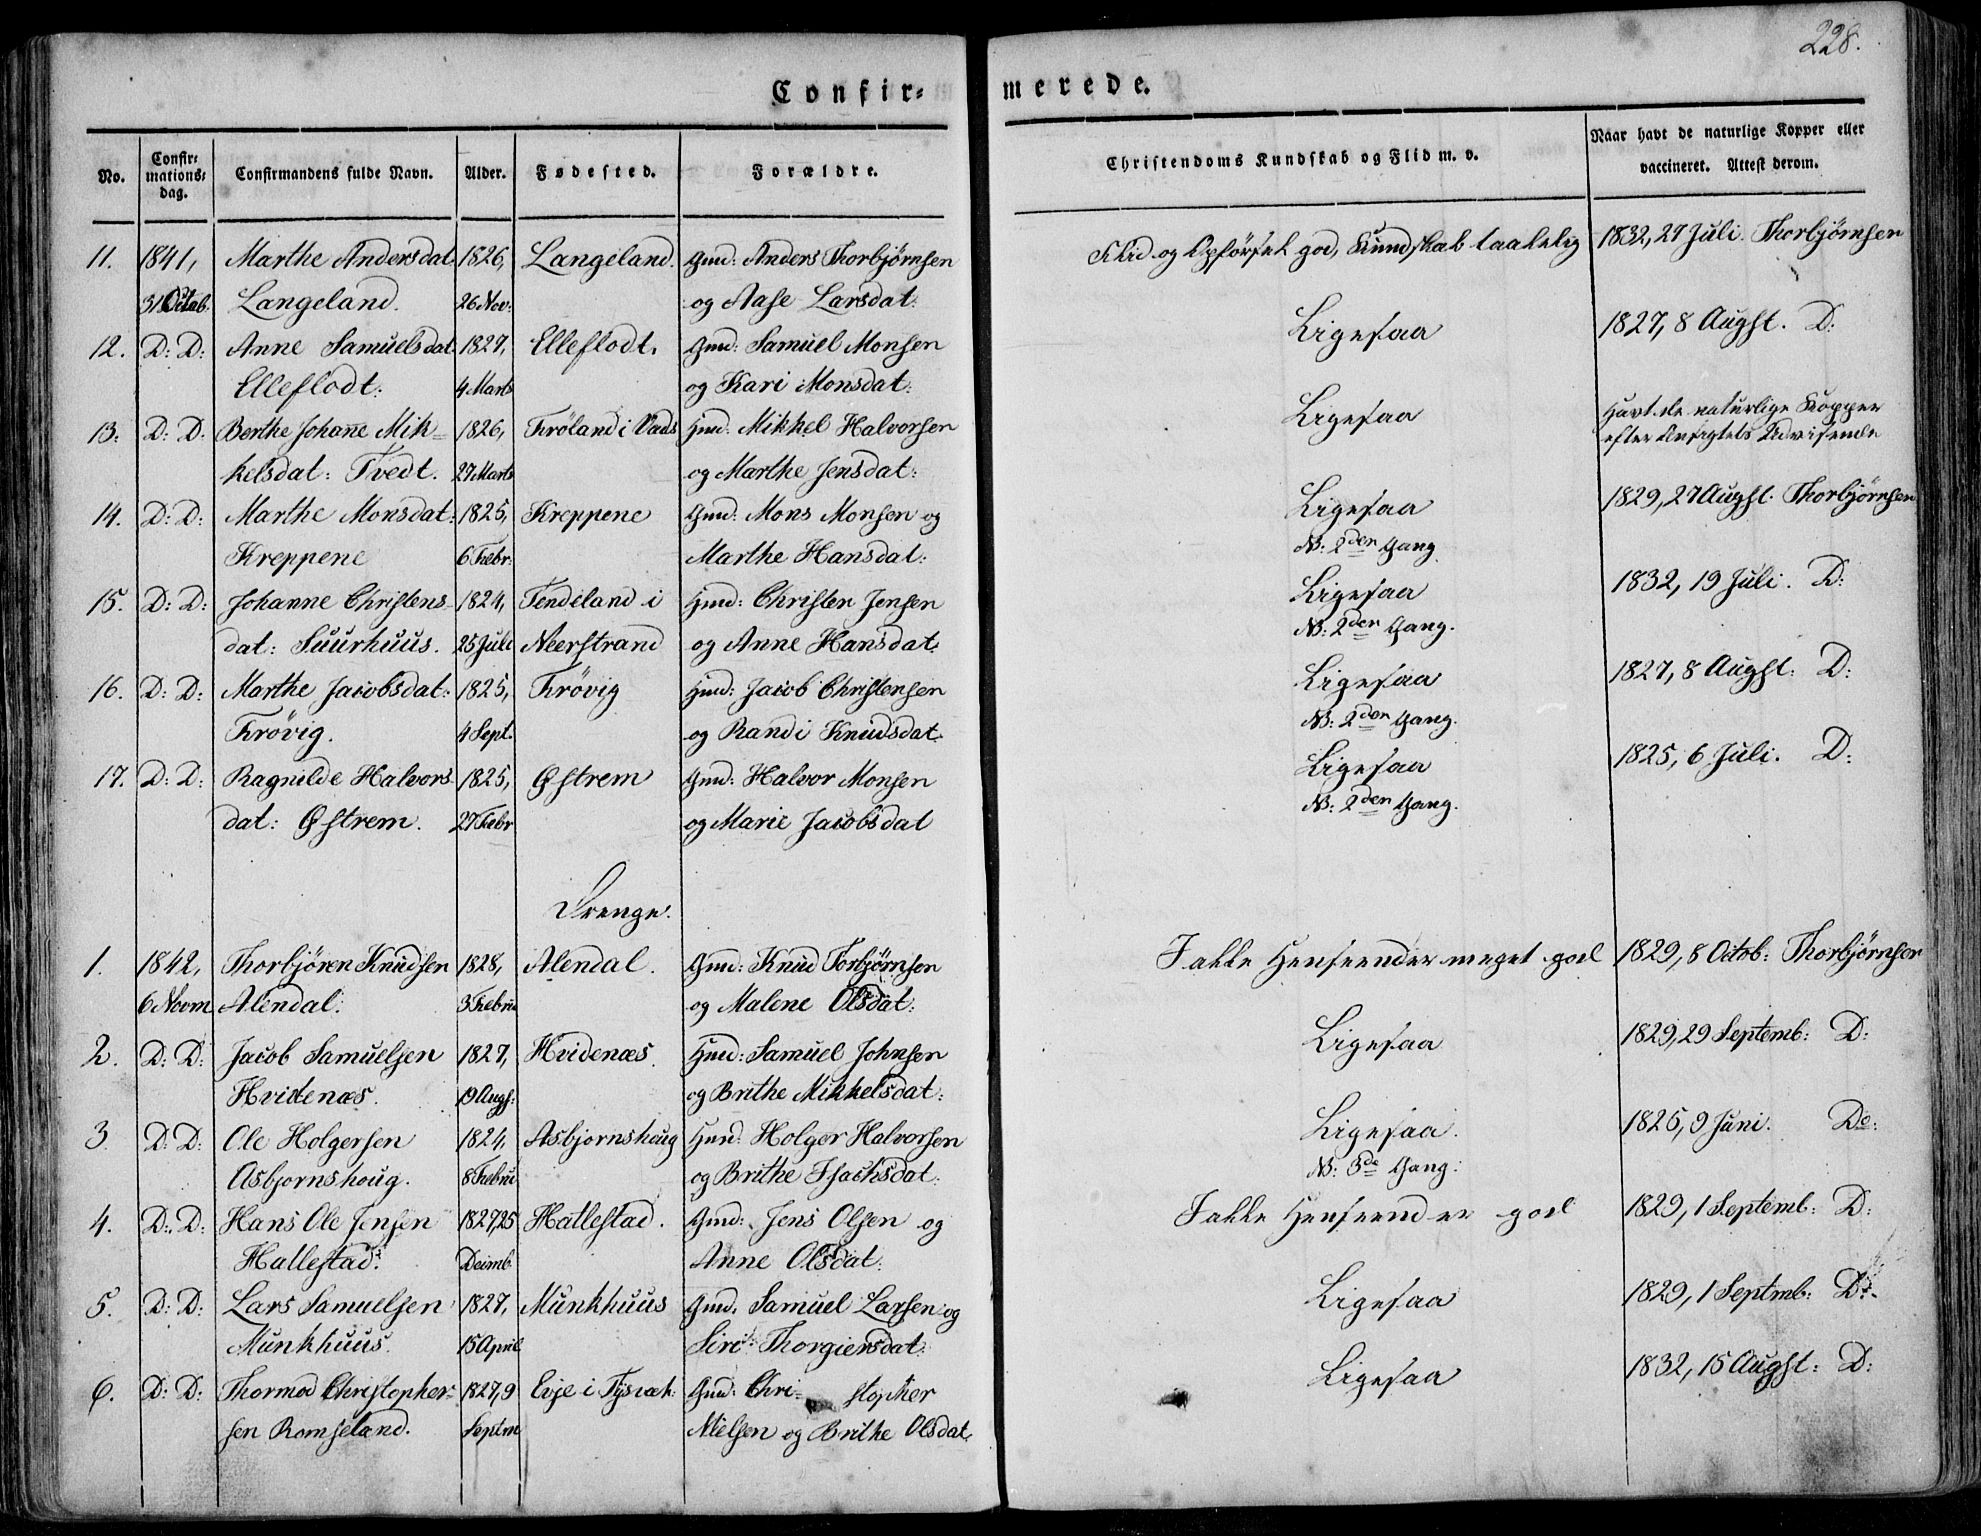 228.
Confir= merede.
No. Confir= mations= dag. Confirmandens fulde Navn. Alder. Fødested. Forældre. Christendoms Kundskab og Flid m. v. Naar havt de naturlige Kopper eller vaccineret. Attest derom.
11. 1841, Marthe Andersdat: 1826, Langeland. Gmd: Anders Thorbjørnsen Flid og Opførsel god, Kundskab taalelig 1832, 27 Juli. Thorbjørnsen
31 Octob. Langeland. 26 Nov: og Aase Larsdat:
12. D: D: Anne Samuelsdat 1827, Elleflodt. Gmd: Samuel Monsen Ligesaa 1827, 8 Augst. D:
Elleflodt: 4 Marts og Kari Monsdat:
13. D: D: Berthe Johanne Mik= 1826, Frøland i Vads Hmd: Mikkel Halvorsen Ligesaa Havt de naturlige Kopper
efter Ansigtets Udvisende
kelsdat: Tvedt. 27 Marts og Marthe Jensdat:
14. D: D: Marthe Monsdat: 1825, Kreppene Gmd: Mons Monsen og Ligesaa 1829, 27 Augst. Thorbjørnsen
Kreppene 6 Febr: Marthe Hansdat: NB: 2den Gang
15. D: D: Johanne Christens- 1824, Tendeland i Hmd: Christen Jensen Ligesaa 1832, 19 Juli. D:
dat: Suurhuus. 25 Juli Neerstrand og Anne Hansdat: NB: 2den Gang.
16. D: D: Marthe Jacobsdat: 1825, Frøvig Hmd: Jacob Christensen Ligesaa 1827, 8 Augst: D:
Frøvig. 4 Sept. og Randi Knudsdat: NB: 2den Gang.
17. D: D: Ragnilde Halvors 1825, Østrem Gmd: Halvor Monsen Ligesaa 1825, 6 Juli. D:
dat: Østrem. 27 Febr og Marie Jacobsdat NB: 2den Gang.
Drenge.
1. 1842, Thorbjøren Knudsen 1828, Alendal. Gmd: Knud Torbjørnsen I alle Henseender meget god 1829, 8 Octob: Thorbjørnsen
6 Novm Alendal: 3 Februi og Malene Olsdat:
2. D: D: Jacob Samuelsen 1827, Hvidenæs. Hmd: Samuel Johnsen Ligesaa 1829, 29 Septemb: D:
Hvidenæs. 19 Augs: og Brithe Mikkelsdat:
3 D: D: Ole Holgersen 1824, Asbjornshoug Hmd: Holger Halvorsen Ligesaa. 1825, 9 Juni. Do:
Asbjornshoug. 8 Februi og Brithe Isachsdat: NB: 3de Gang:
4. D: D: Hans Ole Jensen 1827, 25 Hallestad. Gmd: Jens Olsen og I alle Henseender god 1829, 1 Septemb: D:
Hallestad: Deimb. Anne Olsdat:
5. D: D: Lars Samuelsen 1827, Munkhuus Gmd: Samuel Larsen og Ligesaa 1829, 1 Septmb: D:
Munkhuus. 15 April Siri Thorgiersdat:
6. D: D: Thormod Christopher= 1827, 9 Evje i Tysvæk: Gmd: Chri= stopher Ligesaa 1832, 15 Augst: D:
sen Romseland. Septm Nielsen og Brithe Olsdat: